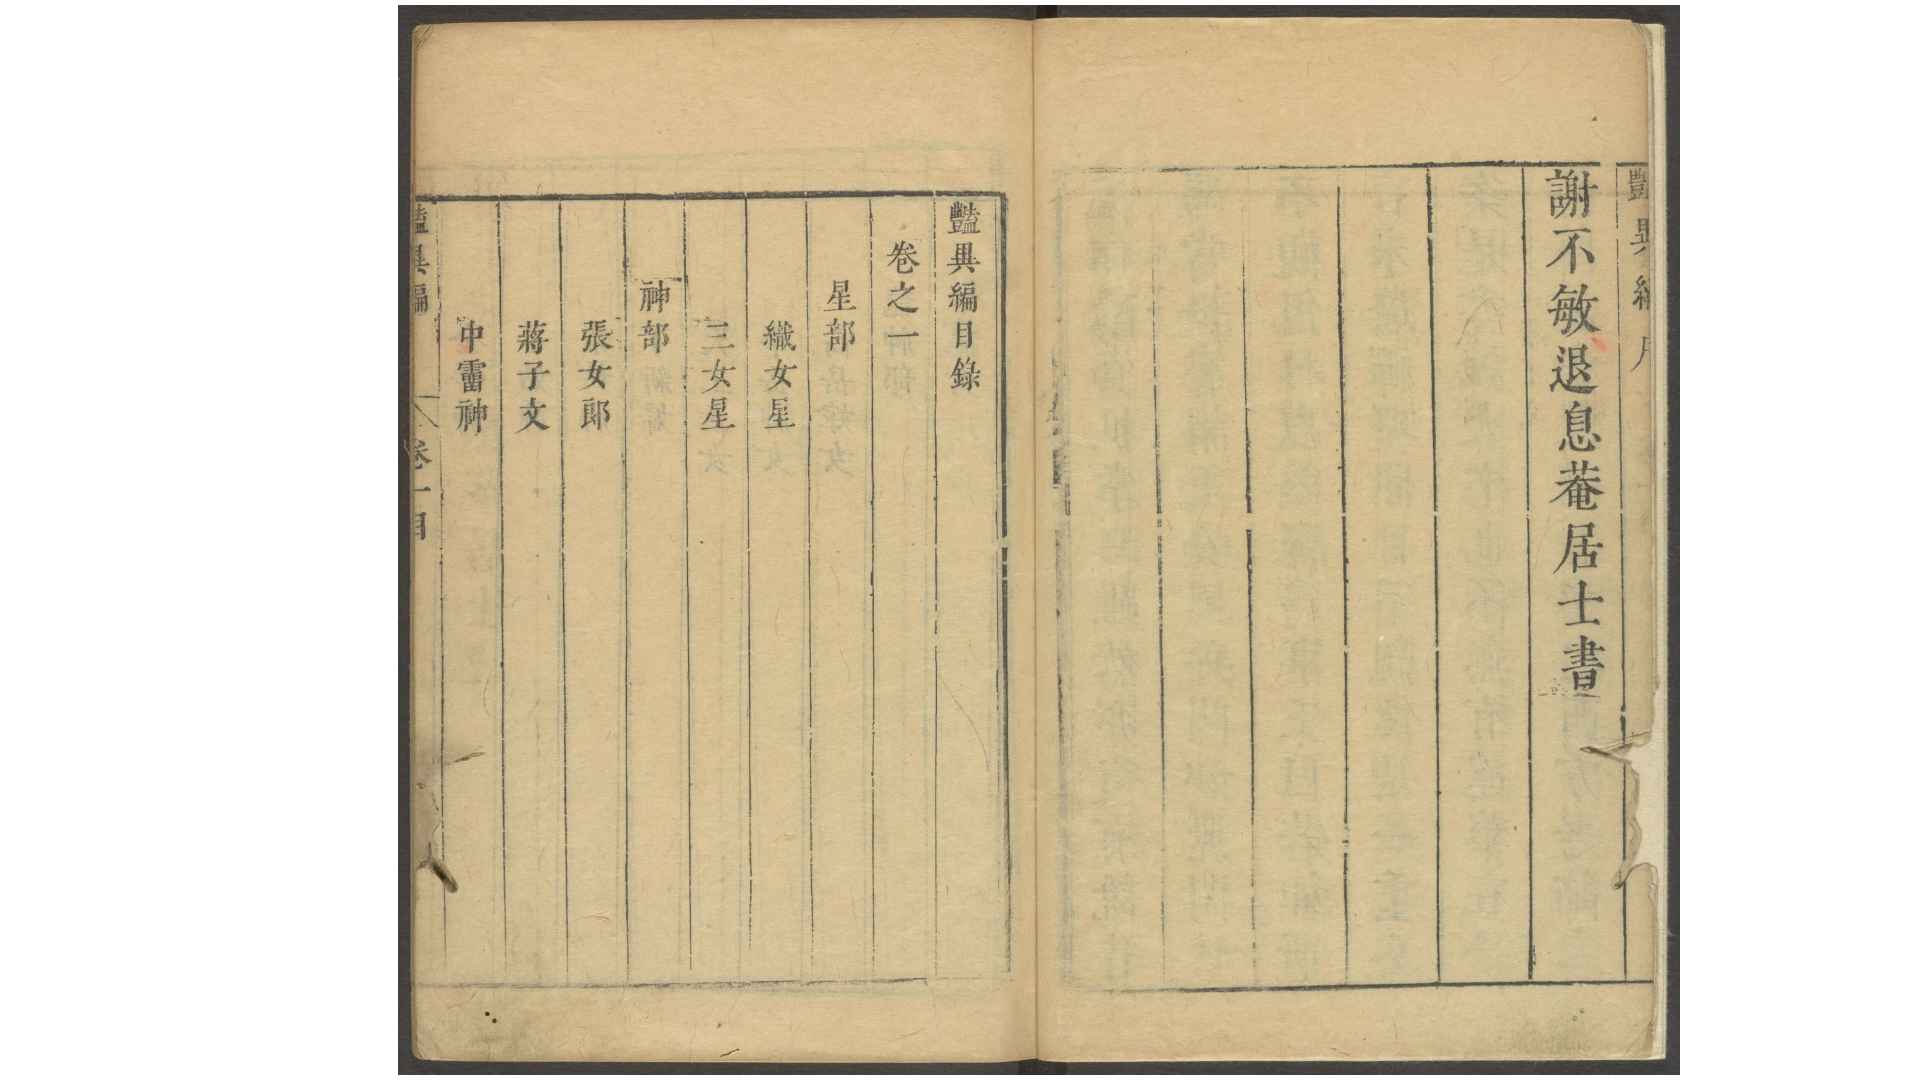 謝不敏退息菴居士書
豔異編目錄
卷之一
星部
織女星
三女星
神部
張女郎
蔣子文
中霤神
豔異編
卷一目